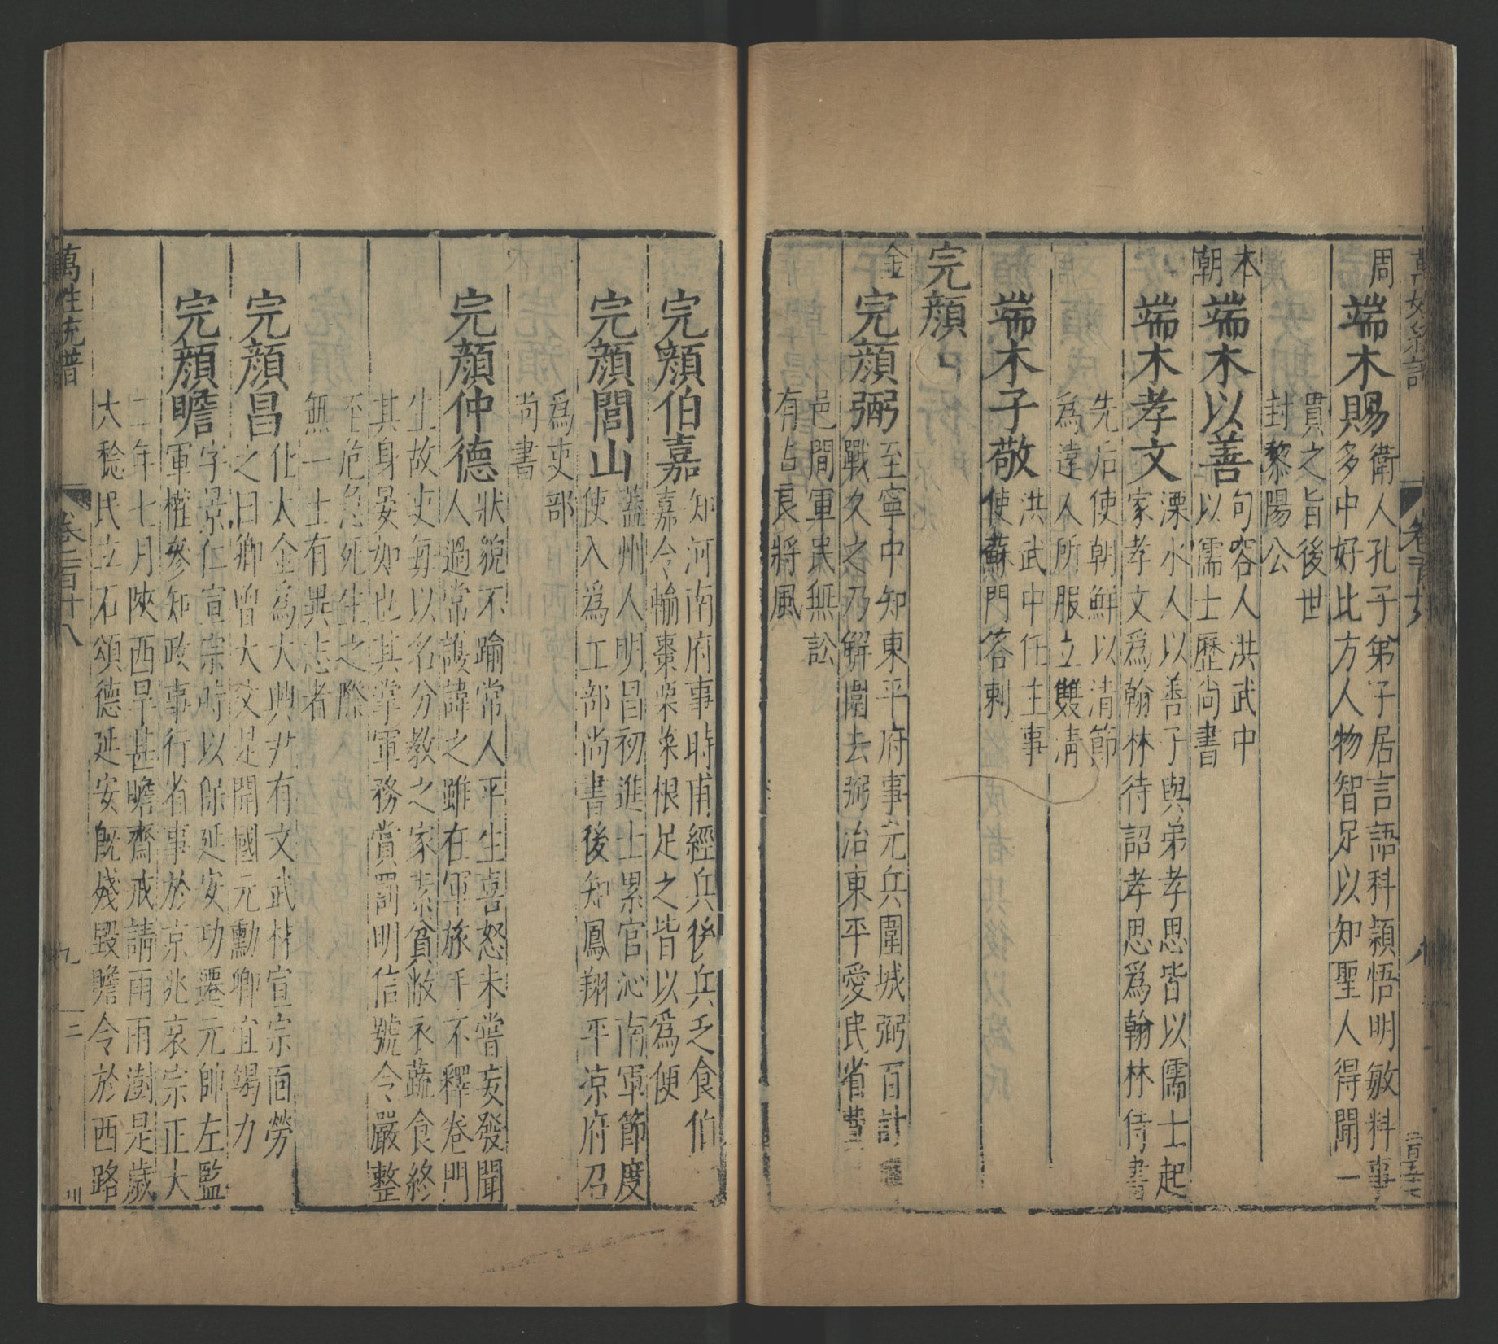 周
端木賜
衛人孔子弟子居言語科穎悟明敏料事
多中好比方人物智足以知聖人得聞一
貫之旨後世
封黎陽公
本
朝
端木以善
句容人洪武中
以儒士歷尚書
端木孝文
溧水人以善子與弟孝思皆以儒士起
家孝文爲翰林待詔孝思爲翰林侍書
先后使朝鮮以清節
爲遠人所服立雙清
端木子敬
洪武中任主事
使蘇門答剌
完顏
金
完顏弼
至寧中知東平府事元兵圍城弼百計
戰久之乃解圍去弼治東平愛民省費
邑間軍民無訟
有古良將風
完顏伯嘉
知河南府事時甫經兵後兵乏食伯
嘉令輸棗栗菜根足之皆以爲便
完顏閭山
蓋州人明昌初進士累官沁南軍節度
使入爲工部尚書後知鳳翔平凉府召
爲吏部
尚書
完顏仲德
狀貌不踰常人平生喜怒未嘗妄發聞
人過常護諱之雖在軍旅手不釋卷門
生故吏每以名分教之家素貧敝衣蔬食終
其身晏如也其掌軍務賞罰明信號令嚴整
至危急死生之際
無一士有異志者
完顏昌
仕大金爲大興尹有文武材宣宗面勞
之曰卿曽大父是開國元勳卿宜竭力
完顏瞻
字景仁宣宗時以保延安功遷元帥左監
軍權參知政事行省事於京兆哀宗正大
二年七月陝西旱甚瞻齋戒請雨雨澍是歲
大稔民立石頌德延安既殘毀瞻令於西路
萬姓統譜
卷一百四十八
九